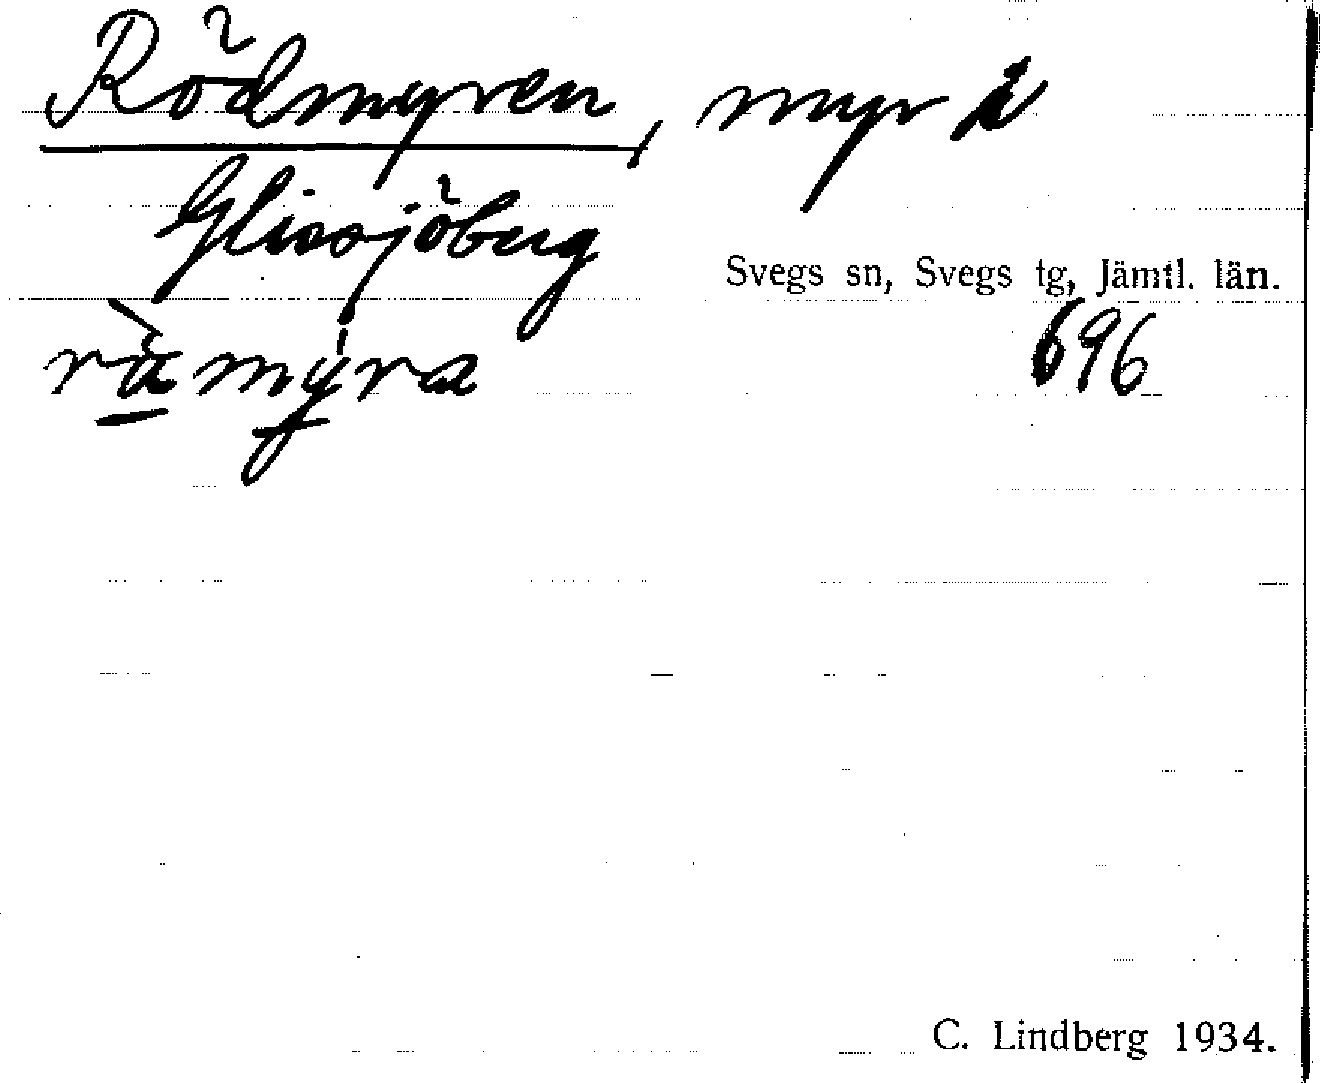 Rödmyren, myr i
Glissjöberg
Svegs sn, Svegs tg, Jämtl. län.
696
ràmyra
C. Lindberg 1934.